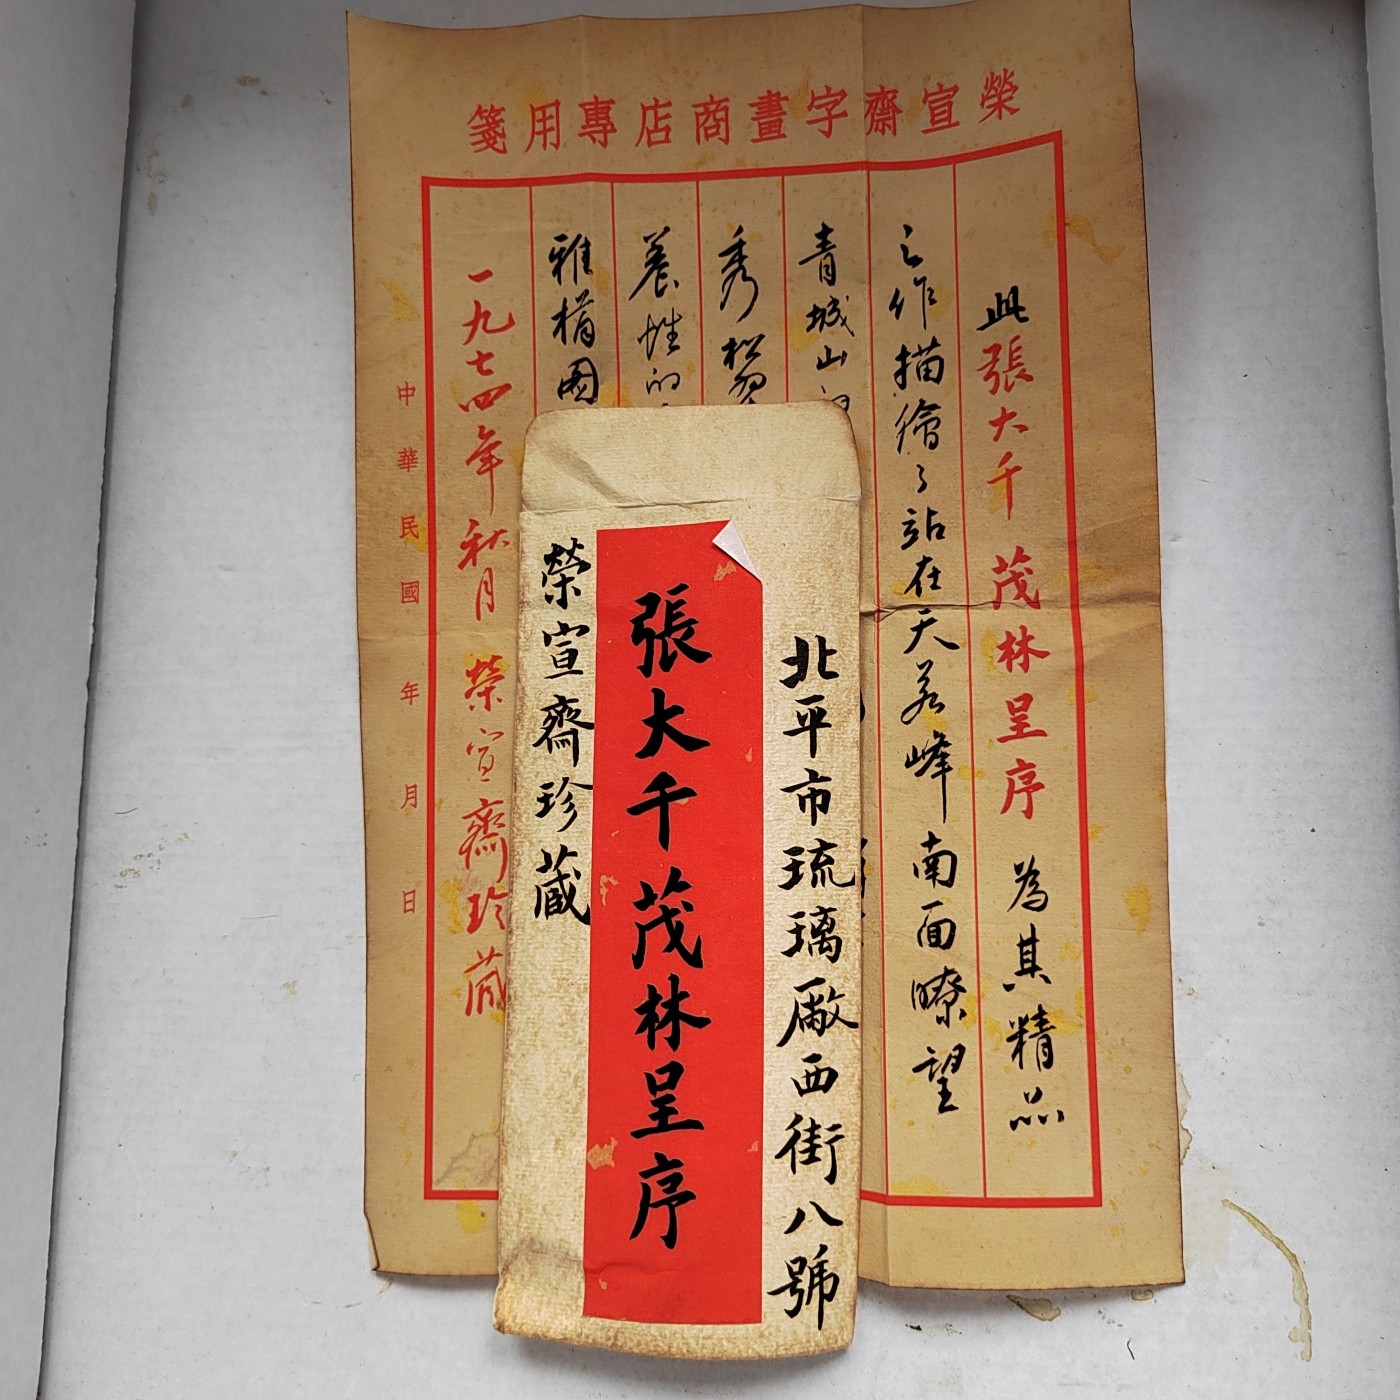 榮宣齋字畫商店專用箋
此張大千 茂林呈序 為其精品
之作描繪了站在天若峰南面瞭望
青城山
秀松翠
養性的
雅構图
一九七四年秋月 榮宣齋珍藏
中華民國 年 月 日
北平市琉璃廠西街八號
張大千茂林呈序
榮宣齋珍藏